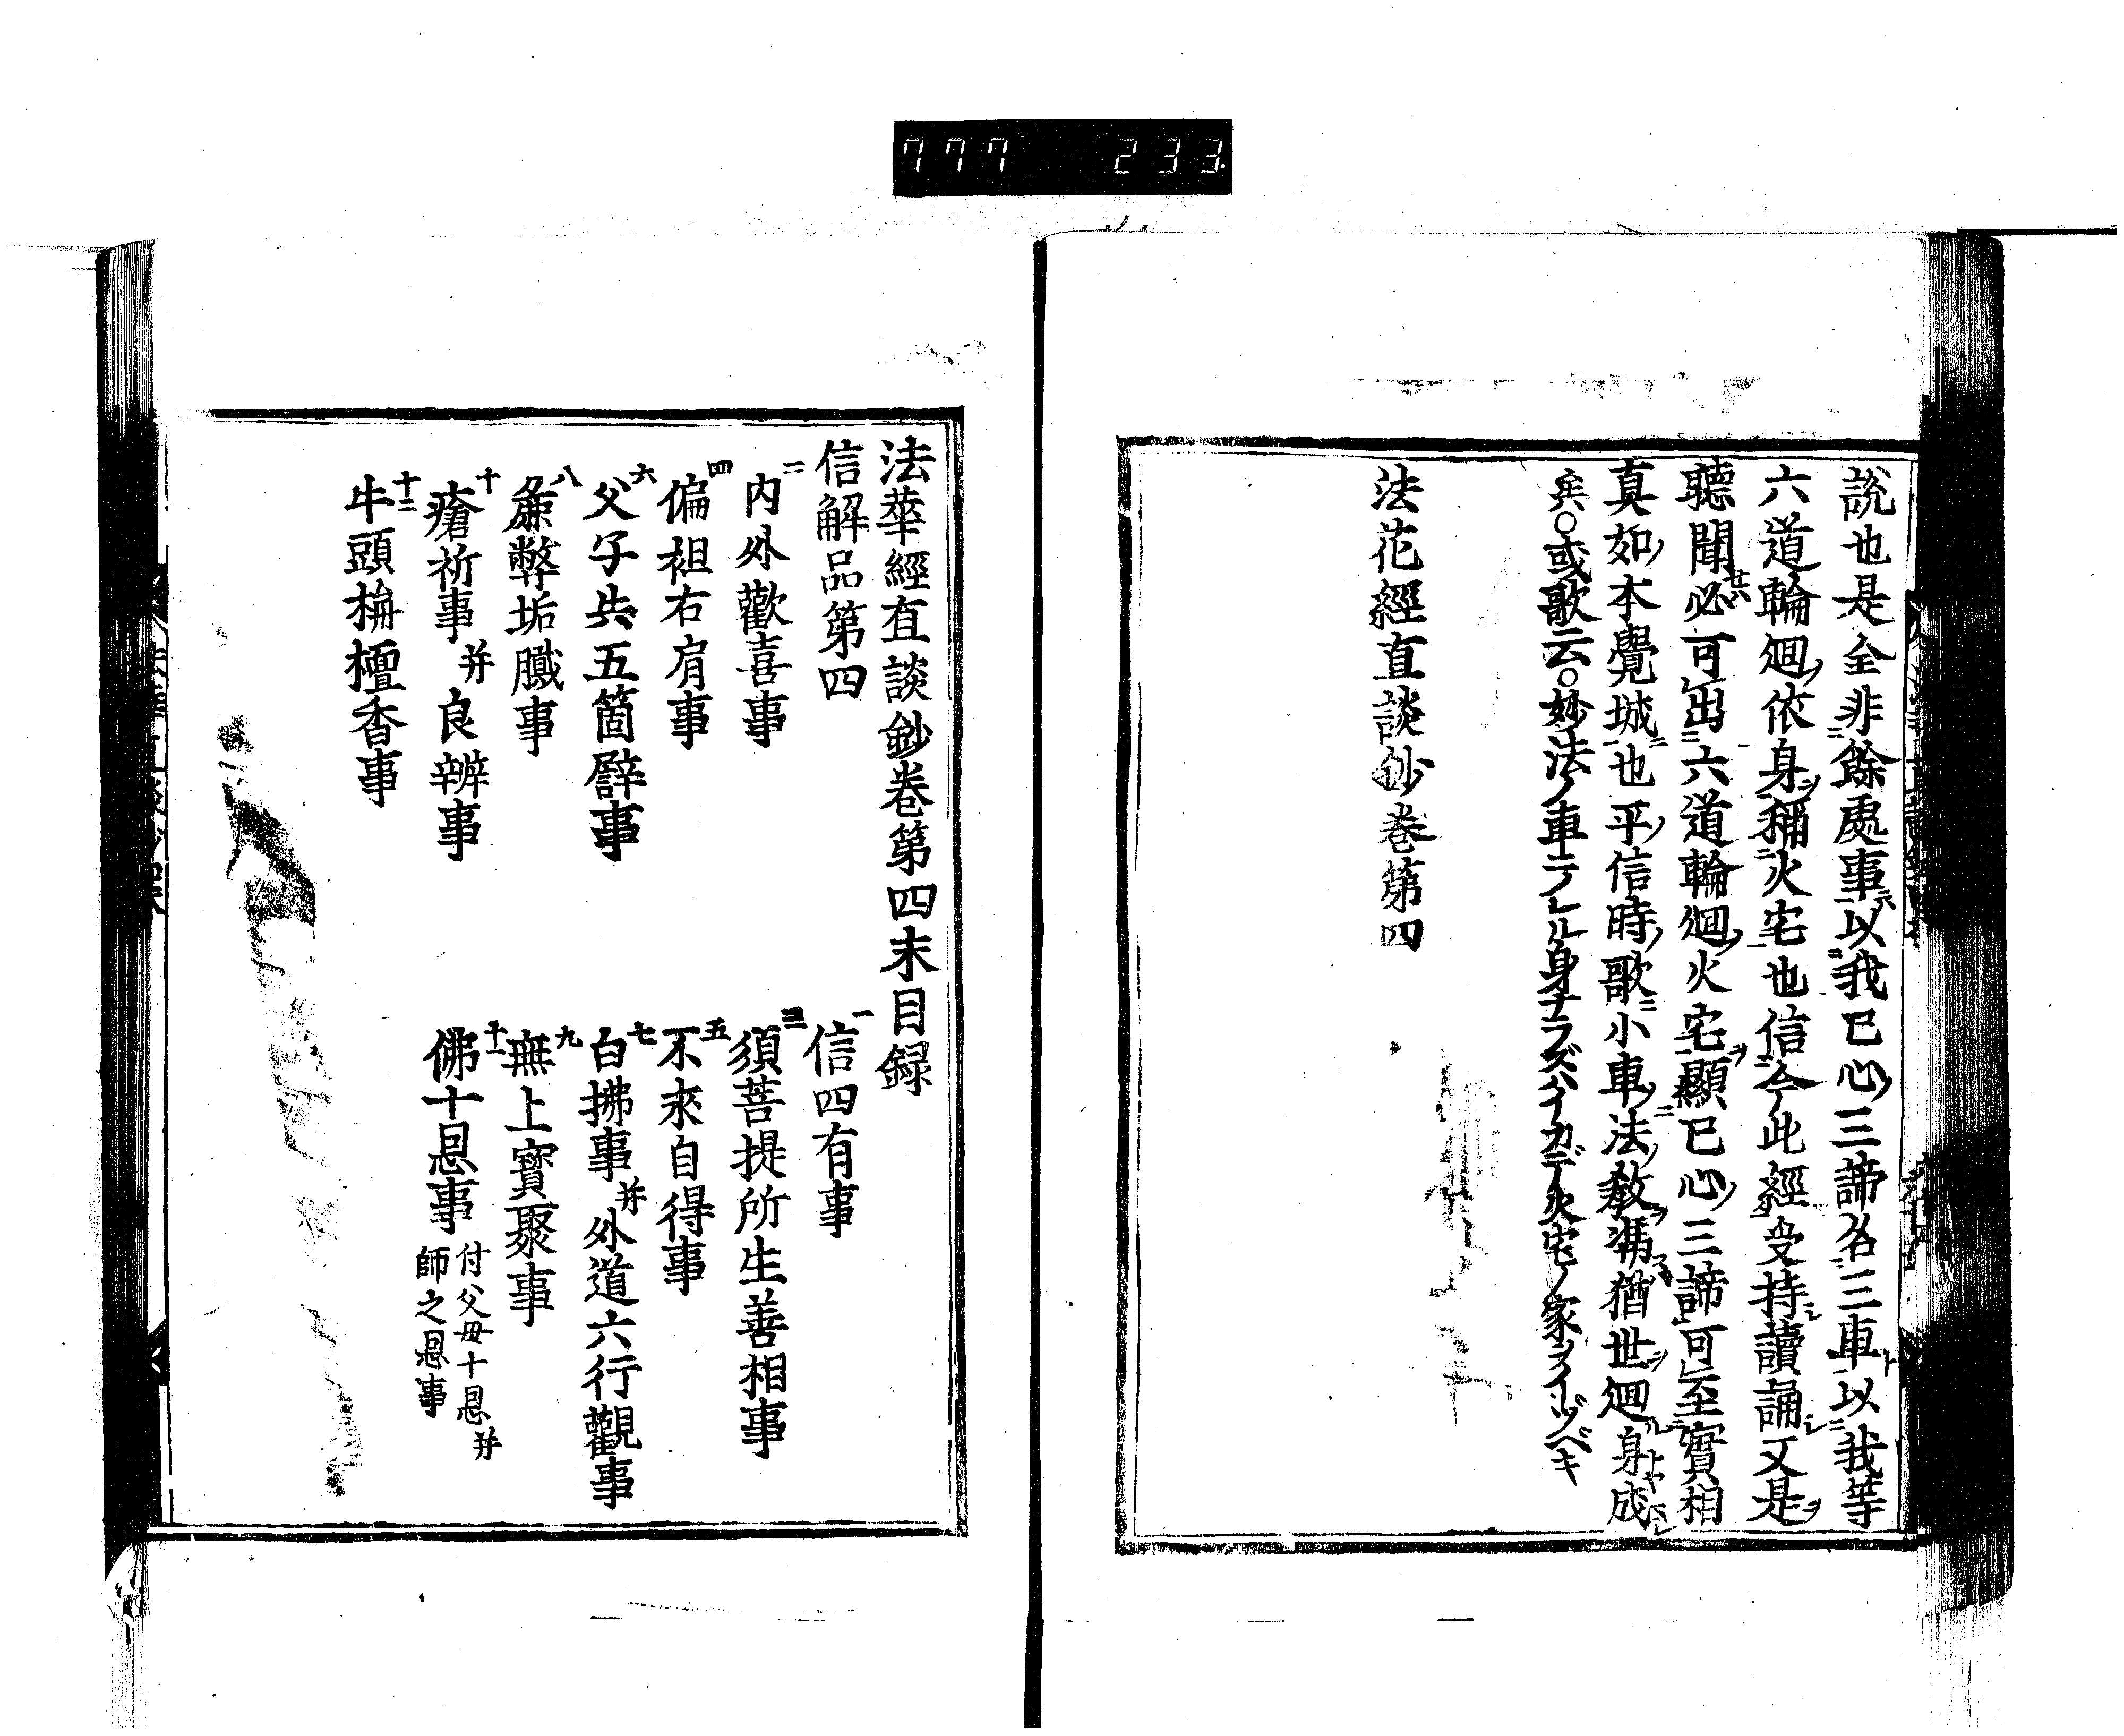 777 233
説也是全非餘處事以我己心三諦名三車以我等
六道輪廻依身稱火宅也信今此經受持讀誦又是
聽聞必可出六道輪廻火宅顯己心三諦可至實相
真如本覺城也平信時歌小車法教猶世廻身成
矣○或歌云○妙法ノ車ニノレル身ナラズハイカデ火宅ノ家ヲイヅベキ
法花經直談鈔巻第四
法華經直談鈔巻第四末目録
信解品第四
一信四有事
二内外歡喜事
三須菩提所生善相事
四偏袒右肩事
五不求自得事
六父子共五箇譬事
七白拂事并外道六行觀事
八麁弊垢膩事
九無上寶聚事
十瘡祈事并良辨事
十一佛十恩事 付父母十恩并師之恩事
十二牛頭栴檀香事